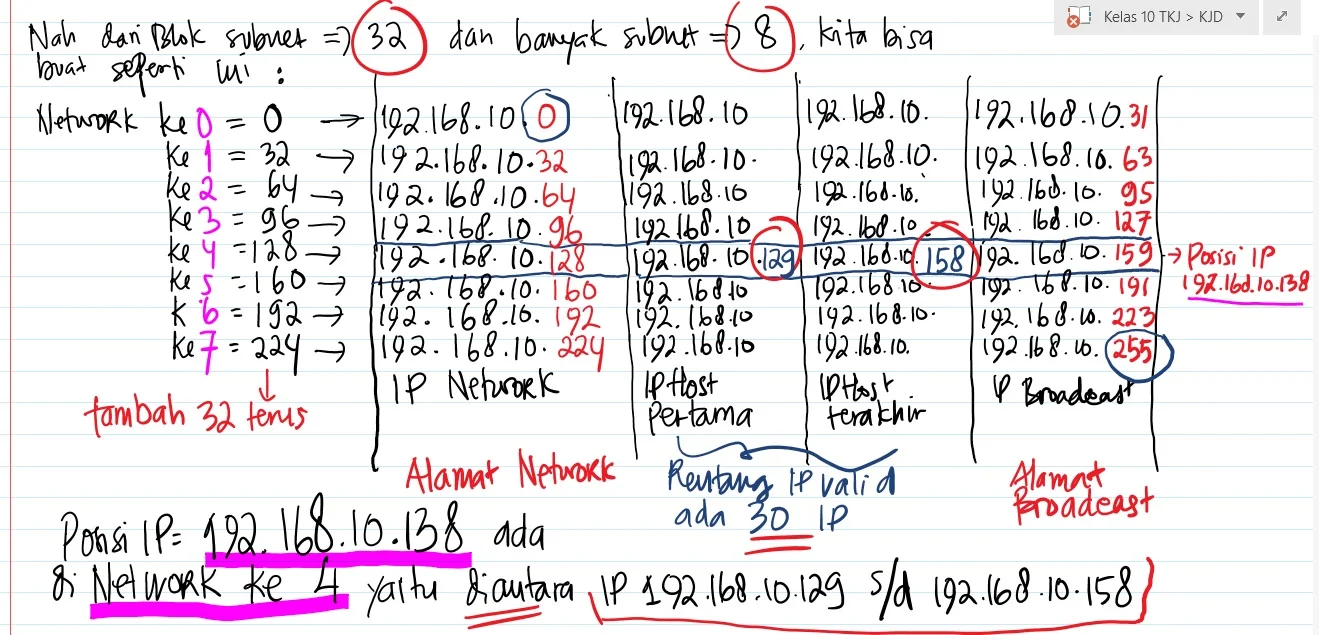 Kelas 10 TKJ > KJD
Nah dari Blok subnet => 32 dan banyak subnet => 8, kita bisa
buat seperti ini :
Network ke 0 = 0 → 192.168.10.0 192.168.10 192.168.10. 192.168.10.31
ke 1 = 32 → 192.168.10.32 192.168.10. 192.168.10. 192.168.10.63
ke 2 = 64 → 192.168.10.64 192.168.10 192.168.10. 192.168.10.95
ke 3 = 96 → 192.168.10.96 192.168.10 192.168.10. 192.168.10.127
ke 4 = 128 → 192.168.10.128 192.168.10.129 192.168.10.158 192.168.10.159 → Posisi IP
ke 5 = 160 → 192.168.10.160 192.168.10 192.168.10. 192.168.10.191 192.168.10.138
K 6 = 192 → 192.168.10.192 192.168.10 192.168.10. 192.168.10.223
ke 7 = 224 → 192.168.10.224 192.168.10 192.168.10. 192.168.10.255
IP Network IP Host IP Host IP Broadcast
Pertama terakhir
tambah 32 terus
Alamat Network Rentang IP valid Alamat
ada 30 IP Broadcast
Posisi IP = 192.168.10.138 ada
di Network ke 4 yaitu diantara IP 192.168.10.129 s/d 192.168.10.158